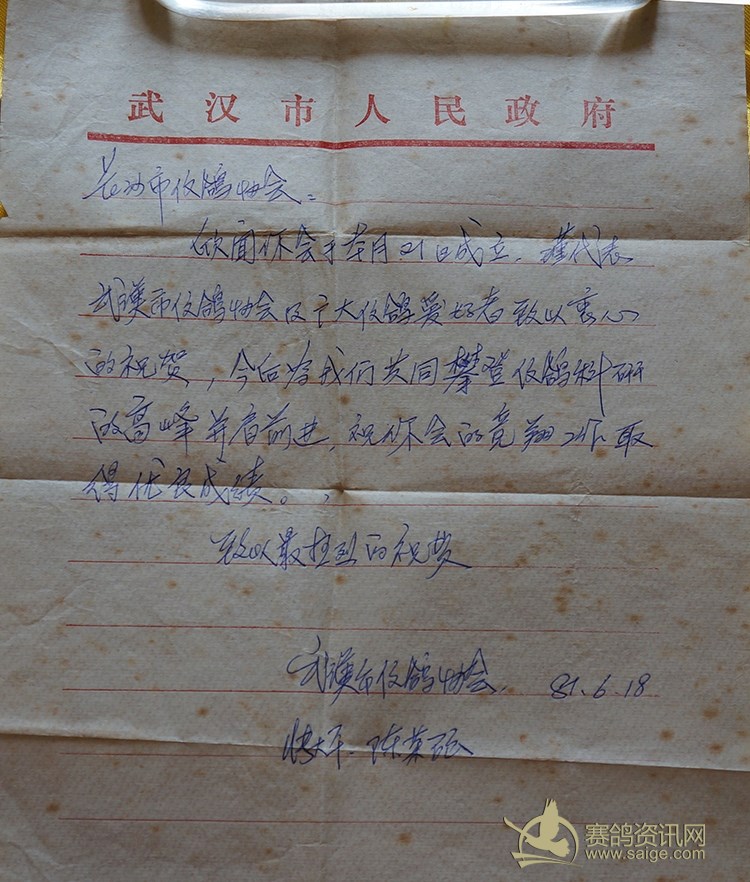 武汉市人民政府
长沙市信鸽协会:
欣闻你会于本月21日成立，谨代表
武漢市信鸽协会及广大信鸽爱好者致以衷心
的祝贺，今后为我们共同攀登信鸽科研
的高峰并肩前进，祝你会的竞翔工作取
得优良成绩。
致以最热烈的祝贺
武漢市信鸽协会. 81.6.18
陈
赛鸽资讯网
www.saige.com